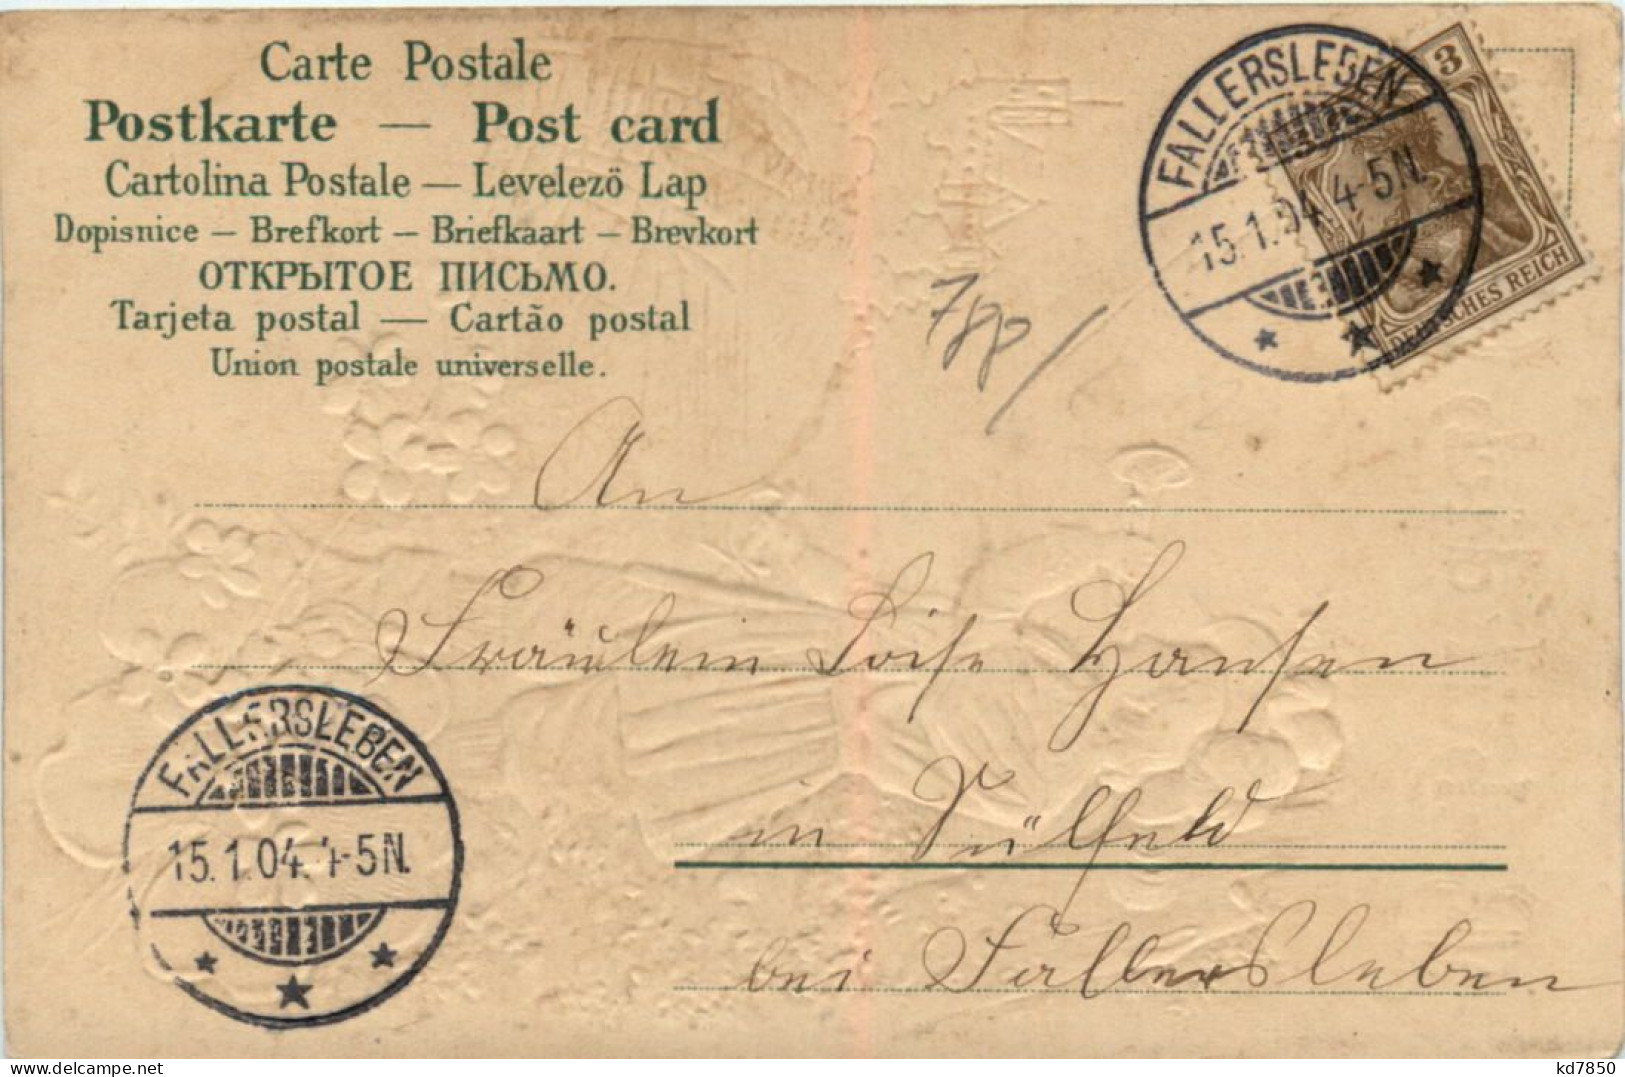 Carte Postale
Postkarte — Post card
Cartolina Postale — Levelezö Lap
Dopisnice — Brefkort — Briefkaart — Brevkort
ОТКРЫТОЕ ПИСЬМО.
Tarjeta postal — Cartão postal
Union postale universelle.
FALLERSLEBEN
15.1.04. 4-5N.
3
DEUTSCHES REICH
An
Fräulein Loise Hansen
in Sülfeld
bei Fallersleben
FALLERSLEBEN
15.1.04. 4-5N.
www.delcampe.net
kd7850